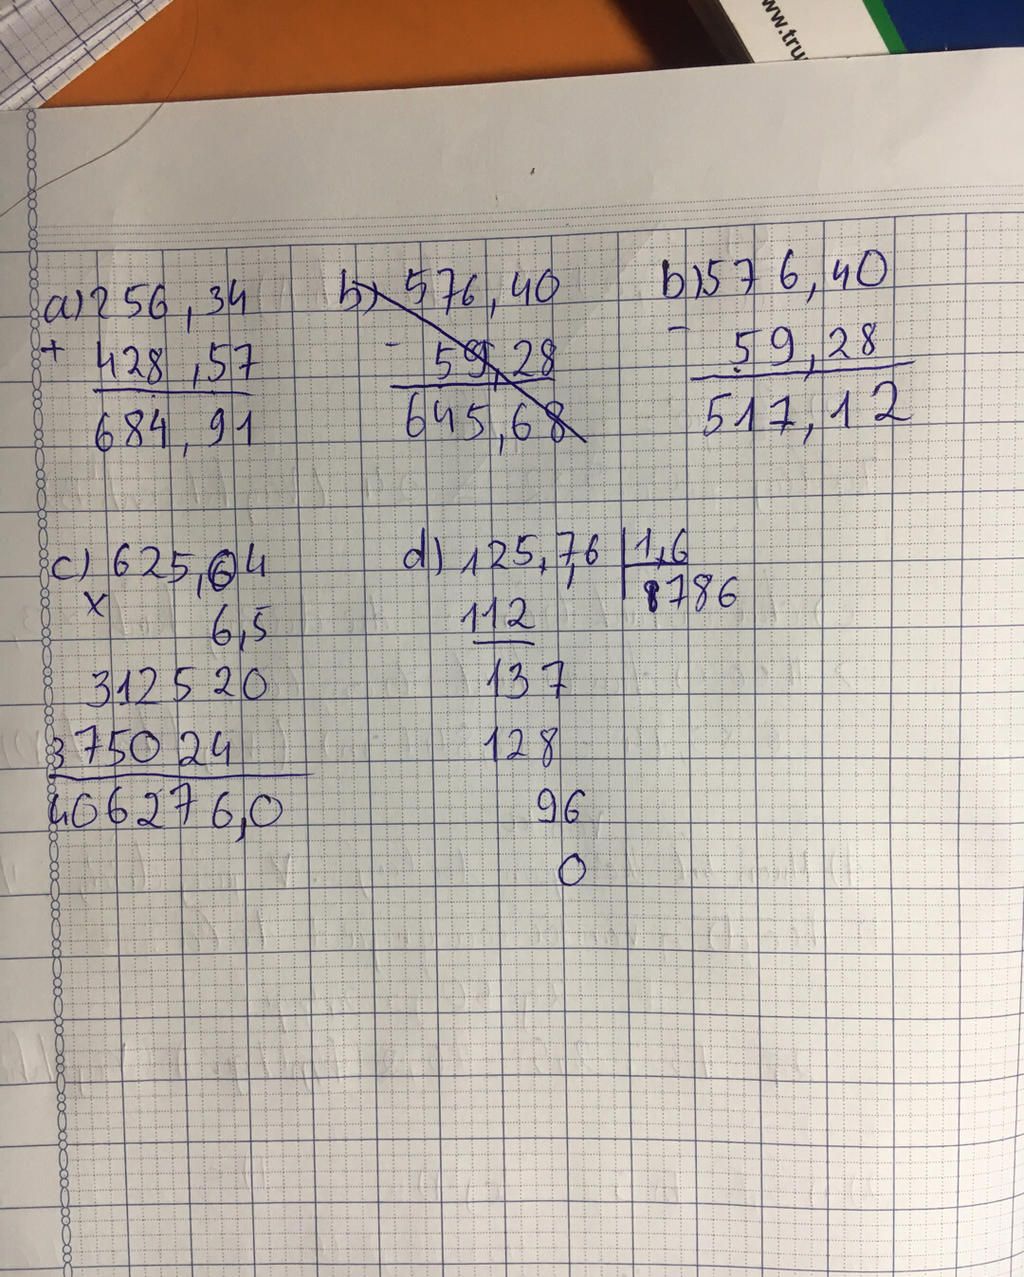 www.tru
a) 256,34
+ 428,57
684,91
b) 576,40
- 59,28
645,68
b) 576,40
- 59,28
517,12
c) 625,04
x 6,5
312520
375024
406276,0
d) 125,7,6 | 1,6
112 8786
137
128
96
0